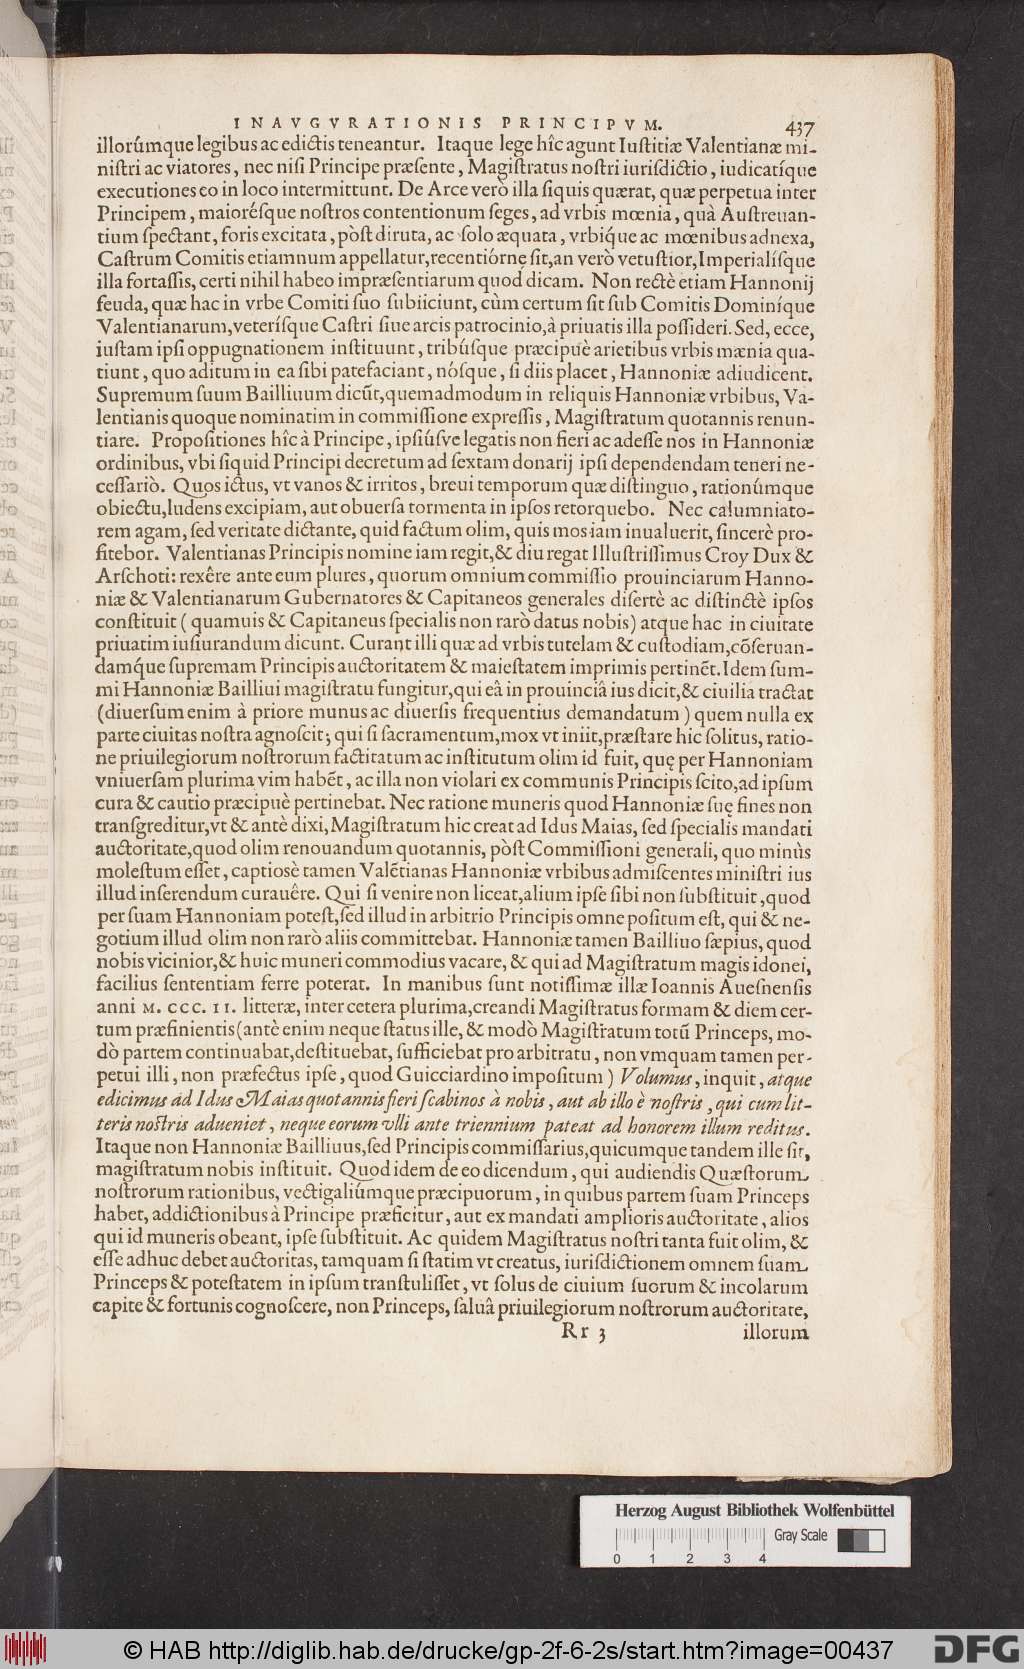 INAVGVRATIONIS PRINCIPVM. 437
illorúmque legibus ac edictis teneantur. Itaque lege hîc agunt Iustitiæ Valentianæ mi-
nistri ac viatores, nec nisi Principe præsente, Magistratus nostri iurisdictio, iudicatíque
executiones eo in loco intermittunt. De Arce verò illa siquis quærat, quæ perpetua inter
Principem, maiorésque nostros contentionum seges, ad vrbis mœnia, quà Austreuan-
tium spectant, foris excitata, pòst diruta, ac solo æquata, vrbiq́ue ac mœnibus adnexa,
Castrum Comitis etiamnum appellatur, recentiórne sit, an verò vetustior, Imperialísque
illa fortassis, certi nihil habeo impræsentiarum quod dicam. Non rectè etiam Hannonij
feuda, quæ hac in vrbe Comiti suo subiiciunt, cùm certum sit sub Comitis Dominíque
Valentianarum, veterísque Castri siue arcis patrocinio, à priuatis illa possideri. Sed, ecce,
iustam ipsi oppugnationem instituunt, tribúsque præcipuè arietibus vrbis mænia qua-
tiunt, quo aditum in ea sibi patefaciant, nósque, si diis placet, Hannoniæ adiudicent.
Supremum suum Bailliuum dicũt, quemadmodum in reliquis Hannoniæ vrbibus, Va-
lentianis quoque nominatim in commissione expressis, Magistratum quotannis renun-
tiare. Propositiones hîc à Principe, ipsiúsve legatis non fieri ac adesse nos in Hannoniæ
ordinibus, vbi siquid Principi decretum ad sextam donarij ipsi dependendam teneri ne-
cessariò. Quos ictus, vt vanos & irritos, breui temporum quæ distinguo, rationúmque
obiectu, ludens excipiam, aut obuersa tormenta in ipsos retorquebo. Nec calumniato-
rem agam, sed veritate dictante, quid factum olim, quis mos iam inualuerit, sincerè pro-
fitebor. Valentianas Principis nomine iam regit, & diu regat Illustrissimus Croy Dux &
Arschoti: rexêre ante eum plures, quorum omnium commissio prouinciarum Hanno-
niæ & Valentianarum Gubernatores & Capitaneos generales disertè ac distinctè ipsos
constituit (quamuis & Capitaneus specialis non rarò datus nobis) atque hac in ciuitate
priuatim iusiurandum dicunt. Curant illi quæ ad vrbis tutelam & custodiam, cõseruan-
damq́ue supremam Principis auctoritatem & maiestatem imprimis pertinẽt. Idem sum-
mi Hannoniæ Bailliui magistratu fungitur, qui eâ in prouinciâ ius dicit, & ciuilia tractat
(diuersum enim à priore munus ac diuersis frequentius demandatum) quem nulla ex
parte ciuitas nostra agnoscit; qui si sacramentum, mox vt iniit, præstare hic solitus, ratio-
ne priuilegiorum nostrorum factitatum ac institutum olim id fuit, quę per Hannoniam
vniuersam plurima vim habẽt, ac illa non violari ex communis Principis scito, ad ipsum
cura & cautio præcipuè pertinebat. Nec ratione muneris quod Hannoniæ suę fines non
transgreditur, vt & antè dixi, Magistratum hic creat ad Idus Maias, sed specialis mandati
auctoritate, quod olim renouandum quotannis, pòst Commissioni generali, quo minùs
molestum esset, captiosè tamen Valẽtianas Hannoniæ vrbibus admiscentes ministri ius
illud inserendum curauêre. Qui si venire non liceat, alium ipse sibi non substituit, quod
per suam Hannoniam potest, sed illud in arbitrio Principis omne positum est, qui & ne-
gotium illud olim non rarò aliis committebat. Hannoniæ tamen Bailliuo sæpius, quod
nobis vicinior, & huic muneri commodius vacare, & qui ad Magistratum magis idonei,
facilius sententiam ferre poterat. In manibus sunt notissimæ illæ Ioannis Auesnensis
anni M. CCC. II. litteræ, inter cetera plurima, creandi Magistratus formam & diem cer-
tum præfinientis (antè enim neque status ille, & modò Magistratum totũ Princeps, mo-
dò partem continuabat, destituebat, sufficiebat pro arbitratu, non vmquam tamen per-
petui illi, non præfectus ipse, quod Guicciardino impositum) Volumus, inquit, atque
edicimus ad Idus Maias quotannis fieri scabinos à nobis, aut ab illo è nostris, qui cum lit-
teris nostris adueniet, neque eorum vlli ante triennium pateat ad honorem illum reditus.
Itaque non Hannoniæ Bailliuus, sed Principis commissarius, quicumque tandem ille sit,
magistratum nobis instituit. Quod idem de eo dicendum, qui audiendis Quæstorum
nostrorum rationibus, vectigaliúmque præcipuorum, in quibus partem suam Princeps
habet, addictionibus à Principe præficitur, aut ex mandati amplioris auctoritate, alios
qui id muneris obeant, ipse substituit. Ac quidem Magistratus nostri tanta fuit olim, &
esse adhuc debet auctoritas, tamquam si statim vt creatus, iurisdictionem omnem suam
Princeps & potestatem in ipsum transtulisset, vt solus de ciuium suorum & incolarum
capite & fortunis cognoscere, non Princeps, saluâ priuilegiorum nostrorum auctoritate,
Rr 3 illorum
Herzog August Bibliothek Wolfenbüttel
Gray Scale
0 1 2 3 4
© HAB http://diglib.hab.de/drucke/gp-2f-6-2s/start.htm?image=00437 DFG